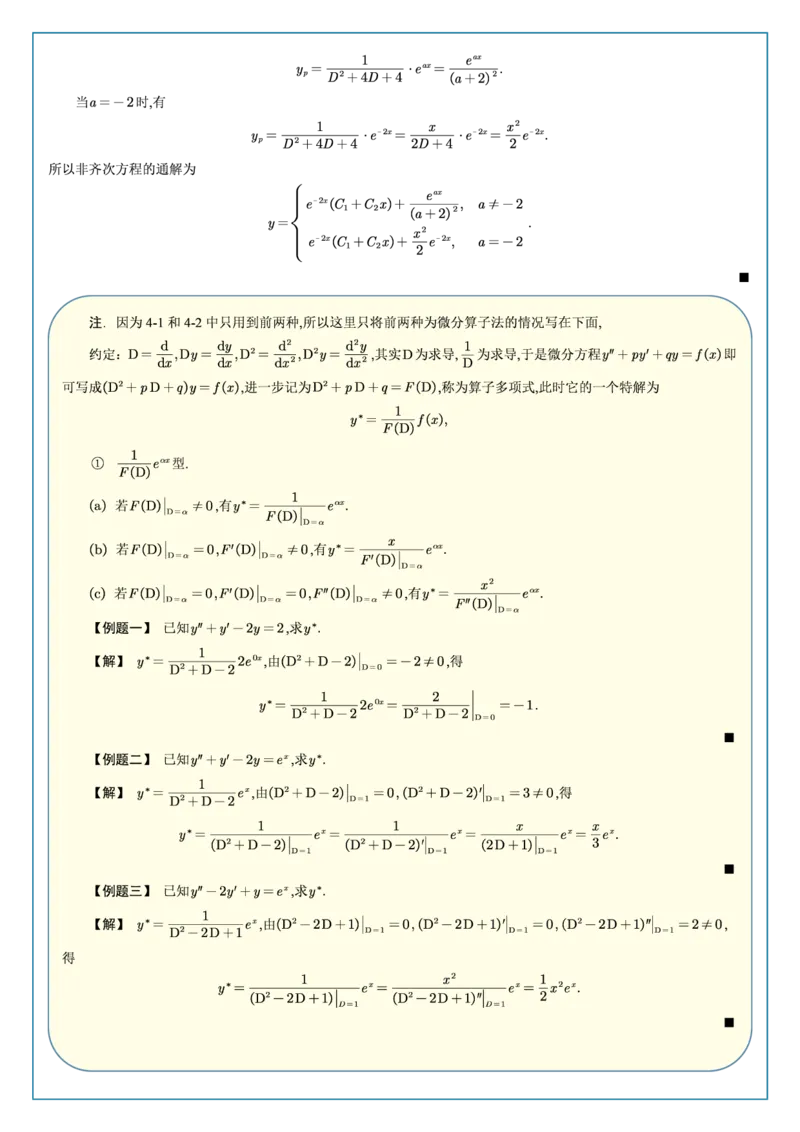 $y_p=\frac{1}{D^2+4D+4}\cdot e^{ax}=\frac{e^{ax}}{(a+2)^2}.$
当$a=-2$时,有
$y_p=\frac{1}{D^2+4D+4}\cdot e^{-2x}=\frac{x}{2D+4}\cdot e^{-2x}=\frac{x^2}{2}e^{-2x}.$
所以非齐次方程的通解为
$y=\begin{cases}e^{-2x}(C_1+C_2x)+\frac{e^{ax}}{(a+2)^2}, & a\neq-2\\ e^{-2x}(C_1+C_2x)+\frac{x^2}{2}e^{-2x}, & a=-2\end{cases}.$
■
注. 因为4-1和4-2中只用到前两种,所以这里只将前两种为微分算子法的情况写在下面,
约定：$D=\frac{d}{dx},Dy=\frac{dy}{dx},D^2=\frac{d^2}{dx^2},D^2y=\frac{d^2y}{dx^2}$,其实D为求导,$\frac{1}{D}$为求导,于是微分方程$y''+py'+qy=f(x)$即
可写成$(D^2+pD+q)y=f(x)$,进一步记为$D^2+pD+q=F(D)$,称为算子多项式,此时它的一个特解为
$y^*=\frac{1}{F(D)}f(x),$
① $\frac{1}{F(D)}e^{\alpha x}$型.
(a) 若$F(D)|_{D=\alpha}\neq0$,有$y^*=\frac{1}{F(D)|_{D=\alpha}}e^{\alpha x}.$
(b) 若$F(D)|_{D=\alpha}=0,F'(D)|_{D=\alpha}\neq0$,有$y^*=\frac{x}{F'(D)|_{D=\alpha}}e^{\alpha x}.$
(c) 若$F(D)|_{D=\alpha}=0,F'(D)|_{D=\alpha}=0,F''(D)|_{D=\alpha}\neq0$,有$y^*=\frac{x^2}{F''(D)|_{D=\alpha}}e^{\alpha x}.$
【例题一】 已知$y''+y'-2y=2$,求$y^*$.
【解】 $y^*=\frac{1}{D^2+D-2}2e^{0x}$,由$(D^2+D-2)|_{D=0}=-2\neq0$,得
$y^*=\frac{1}{D^2+D-2}2e^{0x}=\frac{2}{D^2+D-2}|_{D=0}=-1.$
■
【例题二】 已知$y''+y'-2y=e^x$,求$y^*$.
【解】 $y^*=\frac{1}{D^2+D-2}e^x$,由$(D^2+D-2)|_{D=1}=0,(D^2+D-2)'|_{D=1}=3\neq0$,得
$y^*=\frac{1}{(D^2+D-2)|_{D=1}}e^x=\frac{1}{(D^2+D-2)'|_{D=1}}e^x=\frac{x}{(2D+1)|_{D=1}}e^x=\frac{x}{3}e^x.$
■
【例题三】 已知$y''-2y'+y=e^x$,求$y^*$.
【解】 $y^*=\frac{1}{D^2-2D+1}e^x$,由$(D^2-2D+1)|_{D=1}=0,(D^2-2D+1)'|_{D=1}=0,(D^2-2D+1)''|_{D=1}=2\neq0$,
得
$y^*=\frac{1}{(D^2-2D+1)|_{D=1}}e^x=\frac{x^2}{(D^2-2D+1)''|_{D=1}}e^x=\frac{1}{2}x^2e^x.$
■